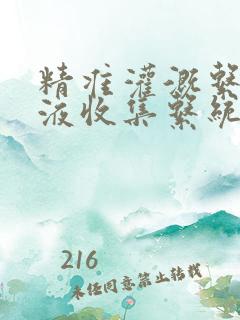 精准灌溉繫
液收集繫統
216
未经同意禁止转载